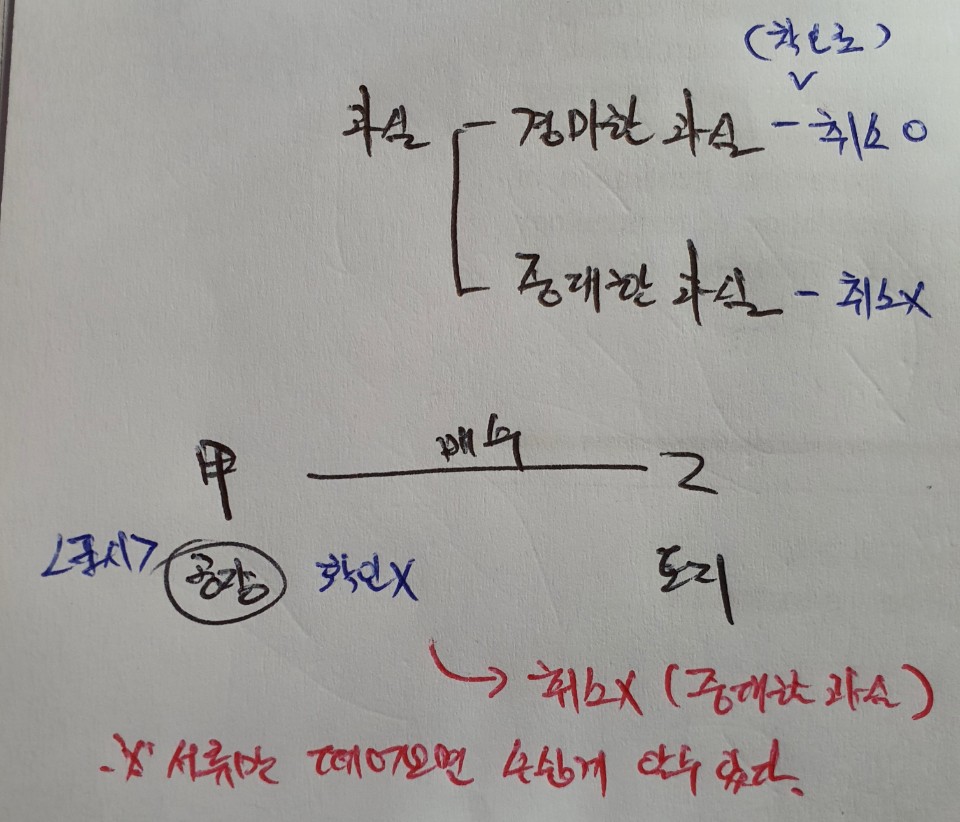 (착오로)
∨
과실 ─ 경미한 과실 - 취소 O
중대한 과실 - 취소X
매수
甲 ─ 乙
<중시> 공장 확인X 토지
→ 취소X (중대한 과실)
서류만 떼어오면 손쉽게 알수 있다.